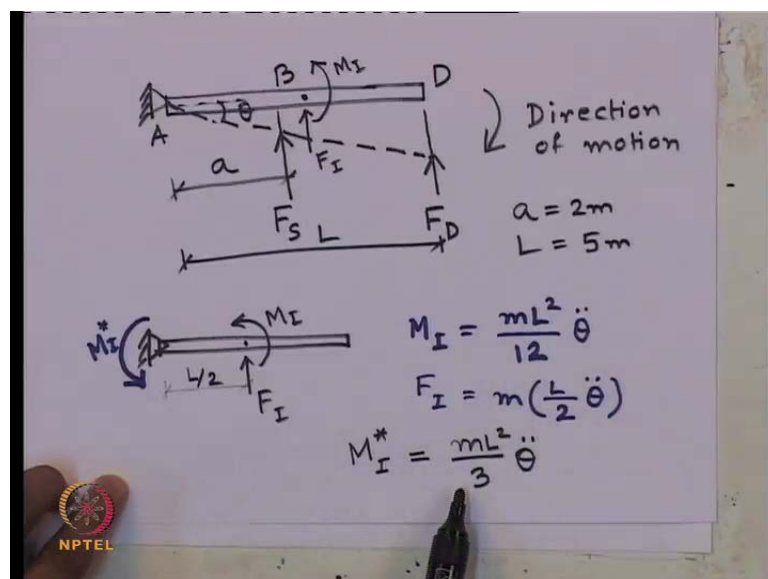 B M_I D
θ
A
F_I
a
F_S F_D
L
Direction
of motion
a = 2m
L = 5m
M_I^* M_I
L/2 F_I
M_I = mL²/12 θ̈
F_I = m(L/2 θ̈)
M_I^* = mL²/3 θ̈
NPTEL